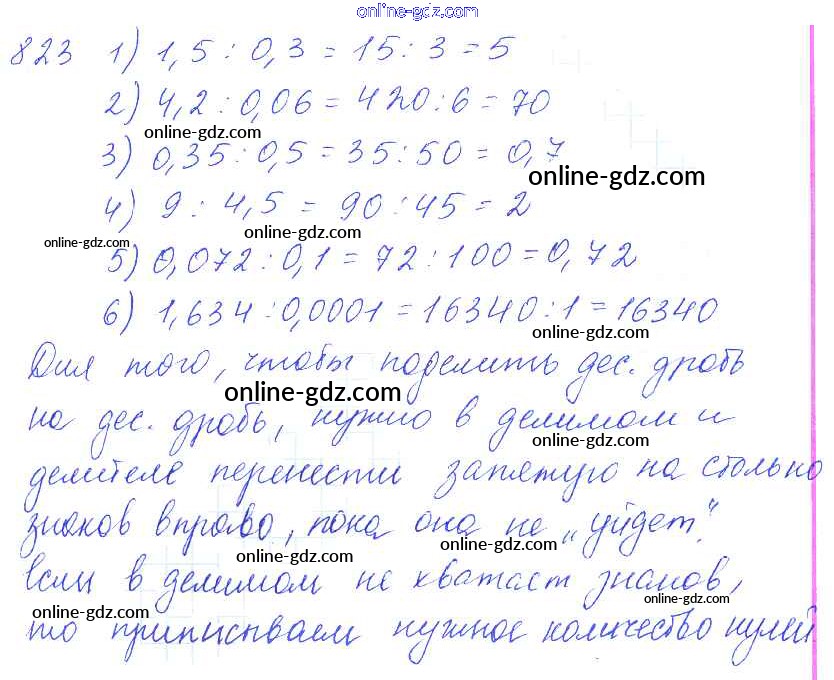 online-gdz.com
823 1) 1,5 : 0,3 = 15 : 3 = 5
2) 4,2 : 0,06 = 420 : 6 = 70
online-gdz.com
3) 0,35 : 0,5 = 35 : 50 = 0,7
online-gdz.com
4) 9 : 4,5 = 90 : 45 = 2
online-gdz.com online-gdz.com
5) 0,072 : 0,1 = 72 : 100 = 0,72
6) 1,634 : 0,0001 = 16340 : 1 = 16340
online-gdz.com
Для того, чтобы поделить дес. дробь
online-gdz.com
на дес. дробь, нужно в делимом и
online-gdz.com
делителе перенести запятую на столько
знаков вправо, пока она не „уйдет".
online-gdz.com online-gdz.com
если в делимом не хватает знаков,
online-gdz.com online-gdz.com
то приписываем нужное количество нулей